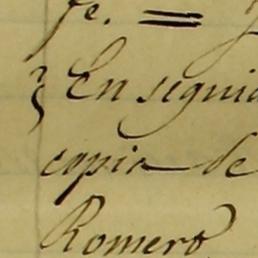 fe. =
En seguid
copia de
Romero